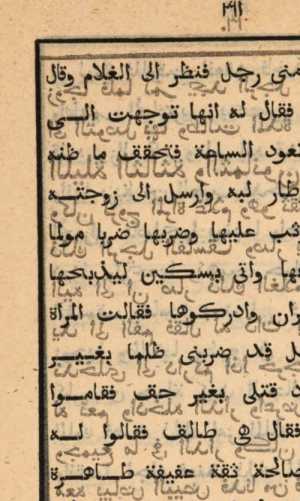 ٢٩١
منى رجل فنظر الى الغلام وقال
فقال له انها توجهت الـى
تعود الساعة فتحقف ما ظنه
طار لبه وارسل الى زوجتـه
عليها وضربها ضربا مولما
واتى بسكين ليذبحها
وادركوها فقالت المراة
قد ضربنى ظلما بغيـر
قتلى بغير حق فقامـوا
فقال هى طالف فقالوا لـه
صالحة ثقة عفيفة طـاهـرة